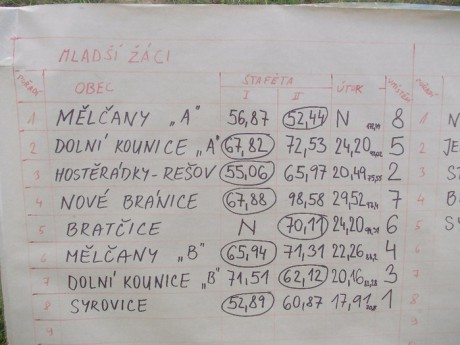 MLADŠÍ ŽÁCI
OBEC ŠTAFETA ÚTOK
I II
1 MĚLČANY „A" 56,87 52,44 N 8
2 DOLNÍ KOUNICE „A" 67,82 72,53 24,20 5
3 HOSTĚRÁDKY-REŠOV 55,06 65,97 20,49 2
4 NOVÉ BRÁNICE 67,88 98,58 29,52 7
5 BRATČICE N 70,11 24,20 6
6 MĚLČANY „B" 65,94 71,31 22,26 4
7 DOLNÍ KOUNICE „B" 71,51 62,12 20,16 3
8 SYROVICE 52,89 60,87 17,91 1
9